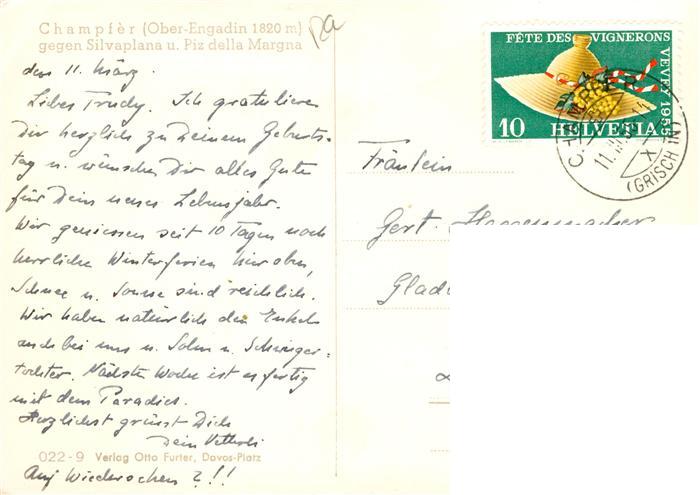 Champfèr (Ober-Engadin 1820 m)
gegen Silvaplana u. Piz della Margna
den 11. März.
Liebes Trudy. Ich gratuliere
Dir herzlich zu Deinem Geburts-
tag u. wünsche Dir alles Gute
für Dein neues Lebensjahr.
Wir geniessen seit 10 Tagen noch
herrliche Winterferien hier oben,
Schnee u. Sonne sind reichlich.
Wir haben natürlich den Enkel
auch bei uns u. Sohn u. Schwieger-
tochter. Nächste Woche ist es fertig
mit dem Paradies.
Herzlichst grüsst Dich
Dein
022-9 Verlag Otto Furter, Davos-Platz
Auf Wiedersehen ?!!
FÊTE DES VIGNERONS
VEVEY 1955
10 HELVETIA
CHAMPFÈR
(GRISCHIN)
Fräulein
Gert.